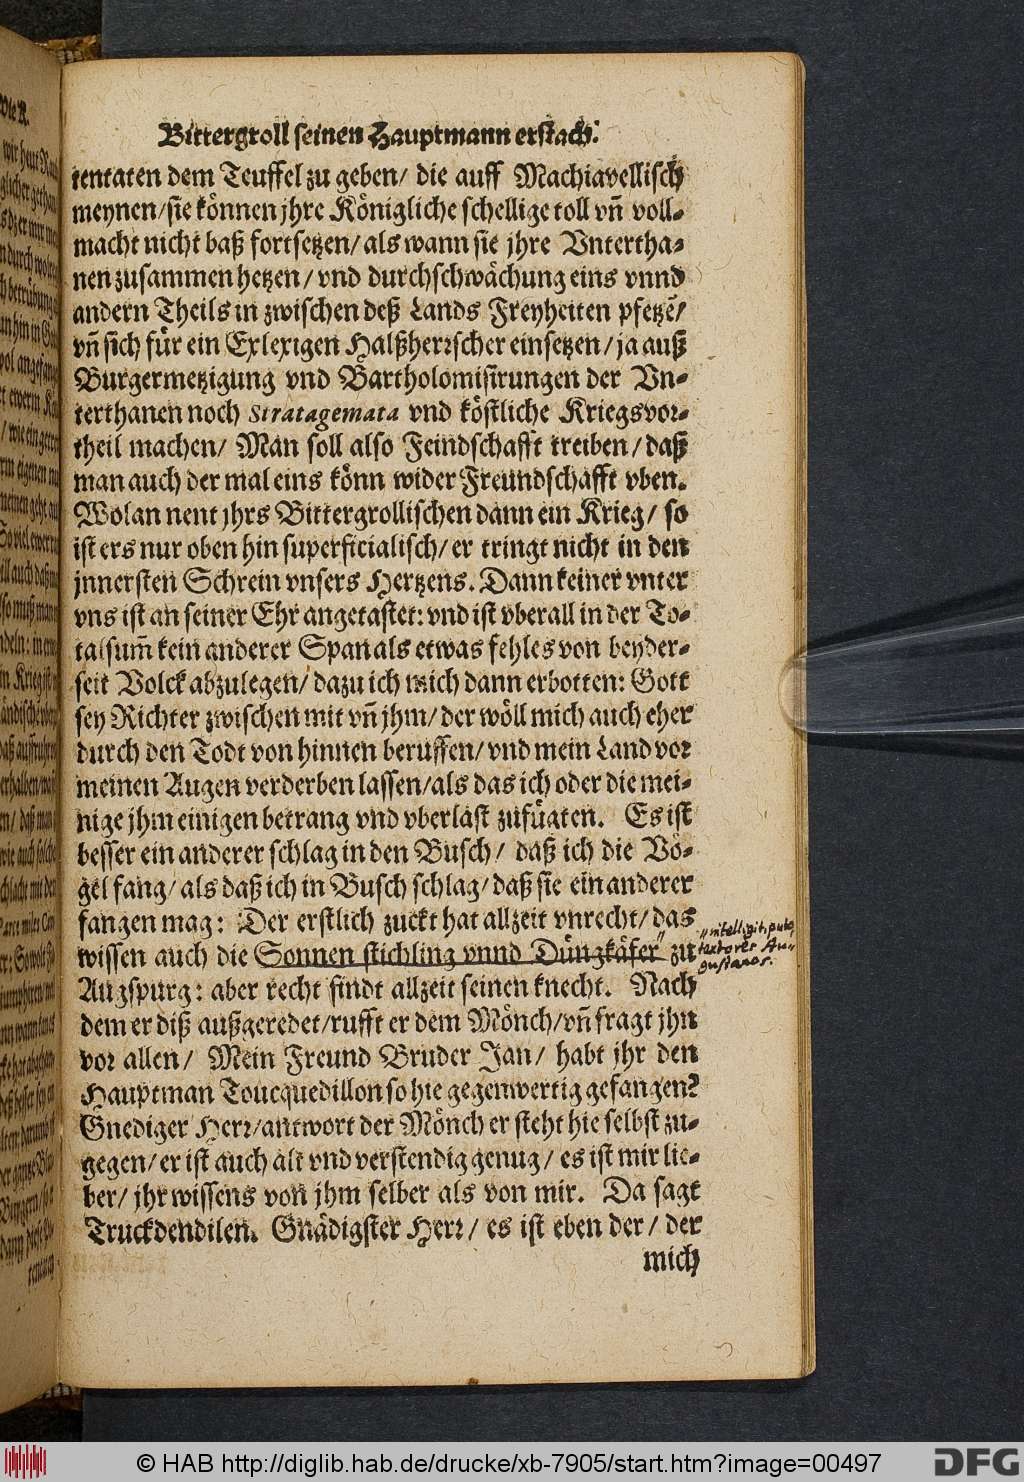 Bittergroll seinen Hauptmann erstach.
tentaten dem Teuffel zu geben/ die auff Machiavellisch
meynen/sie können jhre Königliche schellige toll vn̄ voll-
macht nicht baß fortsetzen/als wann sie jhre Vntertha-
nen zusammen hetzen/vnd durchschwächung eins vnnd
andern Theils in zwischen deß Lands Freyheiten pfetzē/
vn̄ sich für ein Exlexigen Halßherrscher einsetzen/ja auß
Burgermetzigung vnd Bartholomisirungen der Vn-
terthanen noch Stratagemata vnd köstliche Kriegsvor-
theil machen/ Man soll also Feindschafft treiben/daß
man auch der mal eins könn wider Freundschafft vben.
Wolan nent jhrs Bittergrollischen dann ein Krieg/ so
ist ers nur oben hin superficialisch/er tringt nicht in den
jnnersten Schrein vnsers Hertzens. Dann keiner vnter
vns ist an seiner Ehr angetastet: vnd ist vberall in der To-
talsum̄ kein anderer Span als etwas fehles von beyder-
seit Volck abzulegen/dazu ich mich dann erbotten: Gott
sey Richter zwischen mit vn̄ jhm/der wöll mich auch eher
durch den Todt von hinnen beruffen/vnd mein Land vor
meinen Augen verderben lassen/als das ich oder die mei-
nige jhm einigen betrang vnd vberlast zufügten. Es ist
besser ein anderer schlag in den Busch/ daß ich die Vö-
gel fang/als daß ich in Busch schlag/daß sie ein anderer
fangen mag: Der erstlich zuckt hat allzeit vnrecht/das
wissen auch die Sonnen stichling vnnd Düngkäfer zu
Augspurg: aber recht findt allzeit seinen knecht. Nach
dem er diß außgeredet/rufft er dem Mönch/vn̄ fragt jhn
vor allen/ Mein Freund Bruder Jan/ habt jhr den
Hauptman Toucquedillon so hie gegenwertig gefangen?
Gnediger Herr/antwort der Mönch er steht hie selbst zu-
gegen/er ist auch alt vnd verstendig genug/ es ist mir lie-
ber/ jhr wissens von jhm selber als von mir. Da sagt
Truckdendilen. Gnädigster Herr/ es ist eben der/ der
mich
intelligit, puto,
textores Au-
gustanos.
© HAB http://diglib.hab.de/drucke/xb-7905/start.htm?image=00497
DFG